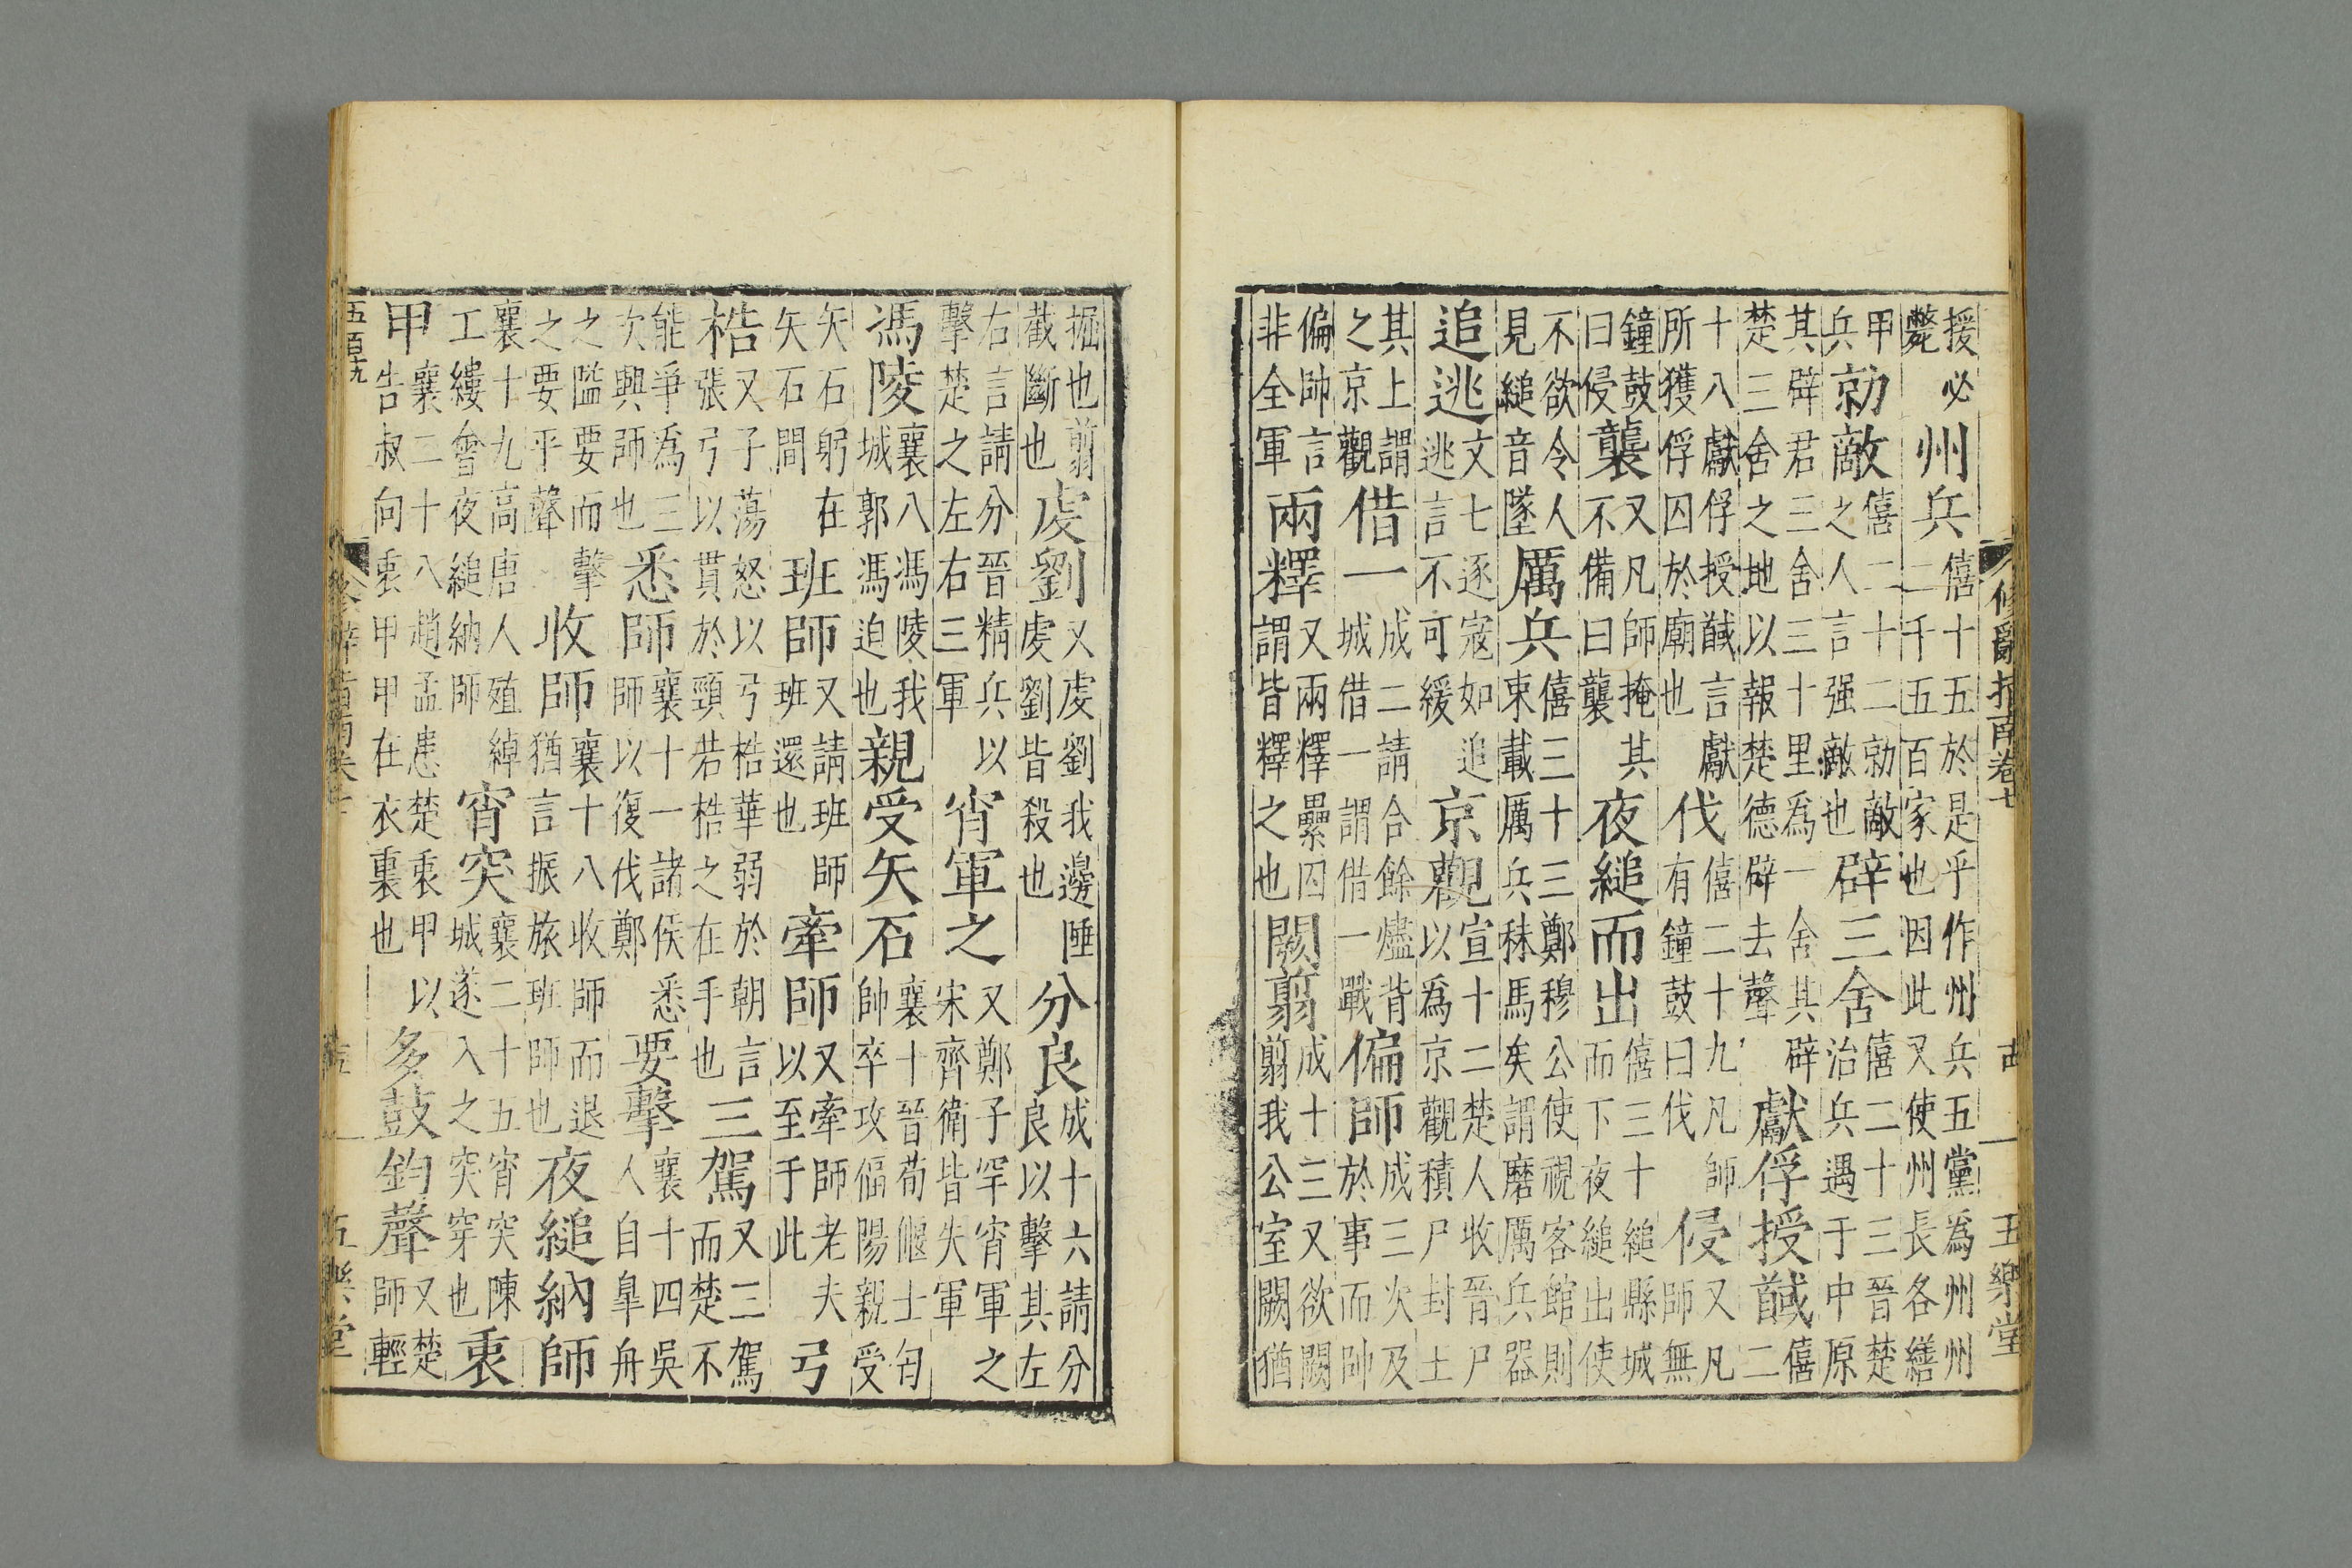 修辭指南卷七 古 一 五樂堂
援必斃州兵僖十五於是乎作州兵五黨為州州二千五百家也因此又使州長各繕
甲兵勍敵僖二十二勍敵之人言强敵也辟三舍僖二十三晉楚治兵遇于中原
其辟君三舍三十里為一舍其辟楚三舍之地以報楚德辟去聲獻俘授馘僖二
十八獻俘授馘言獻所獲俘囚於廟也伐僖二十九凡師有鐘鼓曰伐侵又凡師無
鐘鼓曰侵襲又凡師掩其不備曰襲夜縋而出僖三十縋縣城而下夜縋出使
不欲令人見縋音墜厲兵僖三十三鄭穆公使視客館則束載厲兵秣馬矣謂磨厲兵器
追逃文七逐寇如追逃言不可緩京觀宣十二楚人收晉尸以為京觀積尸封土
其上謂之京觀借一成二請合餘燼背城借一謂借一戰偏師成三次及於事而帥
偏帥言非全軍兩釋又兩釋纍囚謂皆釋之也闕翦成十三又欲闕翦我公室闕猶
掘也翦截斷也虔劉又虔劉我邊陲虔劉皆殺也分良成十六請分良以擊其左
右言請分晉精兵以擊楚之左右三軍宵軍之又鄭子罕宵軍之宋齊衛皆失軍
馮陵襄八馮陵我城郭馮迫也親受矢石襄十晉荀偃士匄帥卒攻偪陽親受
矢石躬在矢石間班師又請班師班還也牽師又牽師老夫以至于此弓
梏又子蕩怒以弓梏華弱於朝言張弓以貫於頸若梏之在手也三駕又三駕而楚不
能爭為三次興師也悉師襄十一諸侯悉師以復伐鄭要擊襄十四吳人自皐舟
之隘要而擊之要平聲收師襄十八收師而退猶言振旅班師也夜縋納師
襄十九高唐人殖綽工僂會夜縋納師宵突襄二十五宵突陳城遂入之突穿也衷
甲襄二十八趙孟患楚衷甲以告叔向衷甲甲在衣裏也多鼓鈞聲又楚師輕
五百十九 修辭指南卷七 一 五樂堂